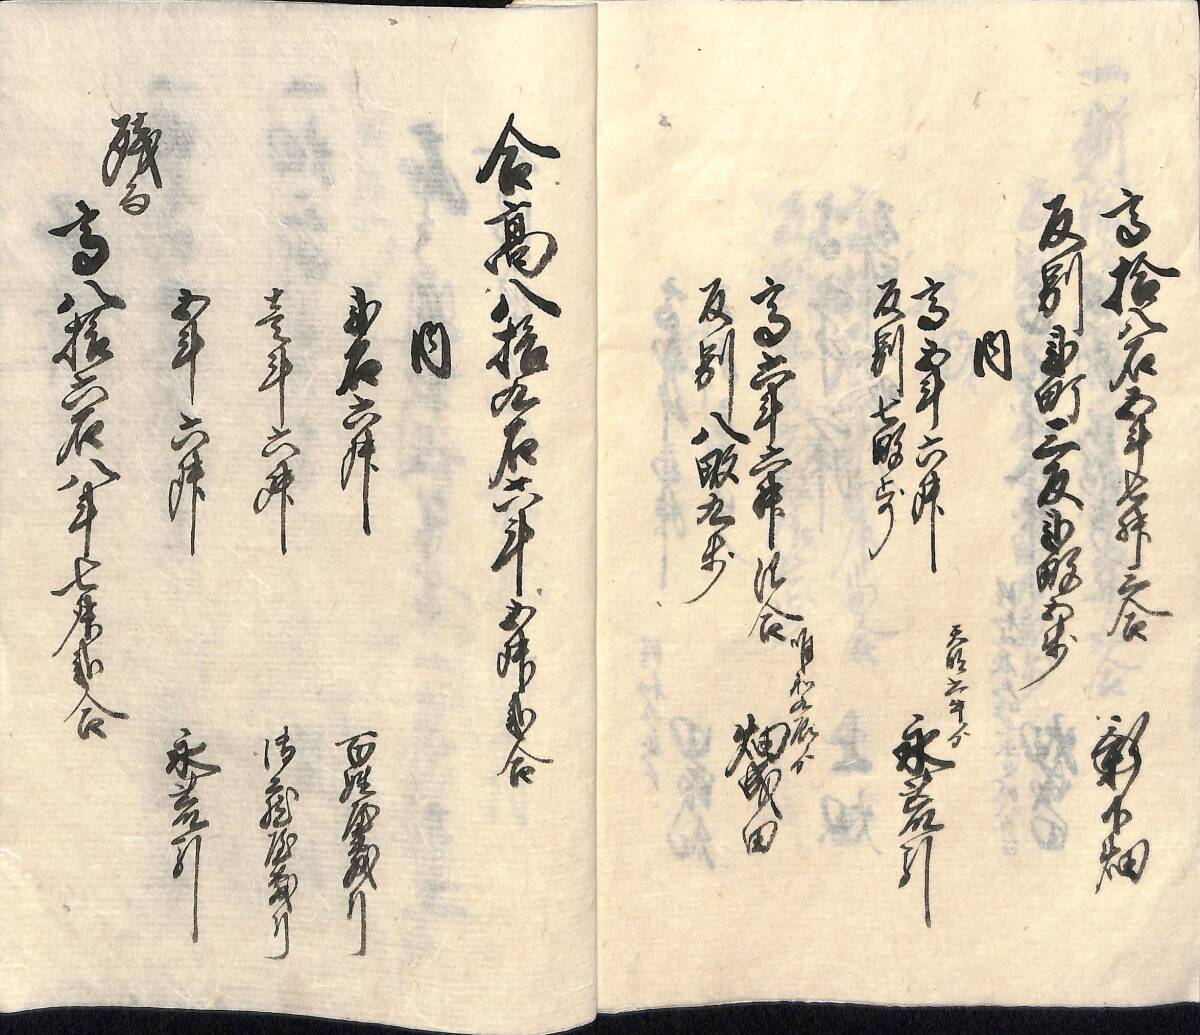 高拾八石五斗七升三合 新下畑
反別弐町三反弐畝五歩
内
高五斗六升 天明六午ゟ 永荒引
反別七畝歩
高六斗六升 合 明和九辰ゟ 畑成田
反別八畝九歩
合高八拾九石六斗五升弐合
内
弐石六升 引
壱斗六升 御蔵屋敷引
五斗六升 永荒引
残而
高八拾六石八斗七升弐合